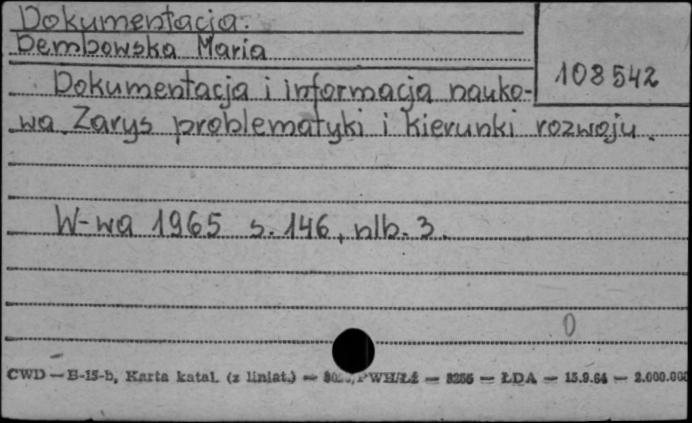 Dokumentacja.
Dembowska Maria
108542
Dokumentacja i informacja nauko-
wa. Zarys problematyki i kierunki rozwoju.
W-wa 1965 s. 146, nlb. 3.
0
CWD — B-15-b, Karta katal. (z liniat.) — PWH/Łź — 8255 — ŁDA — 15.9.64 — 2.000.000